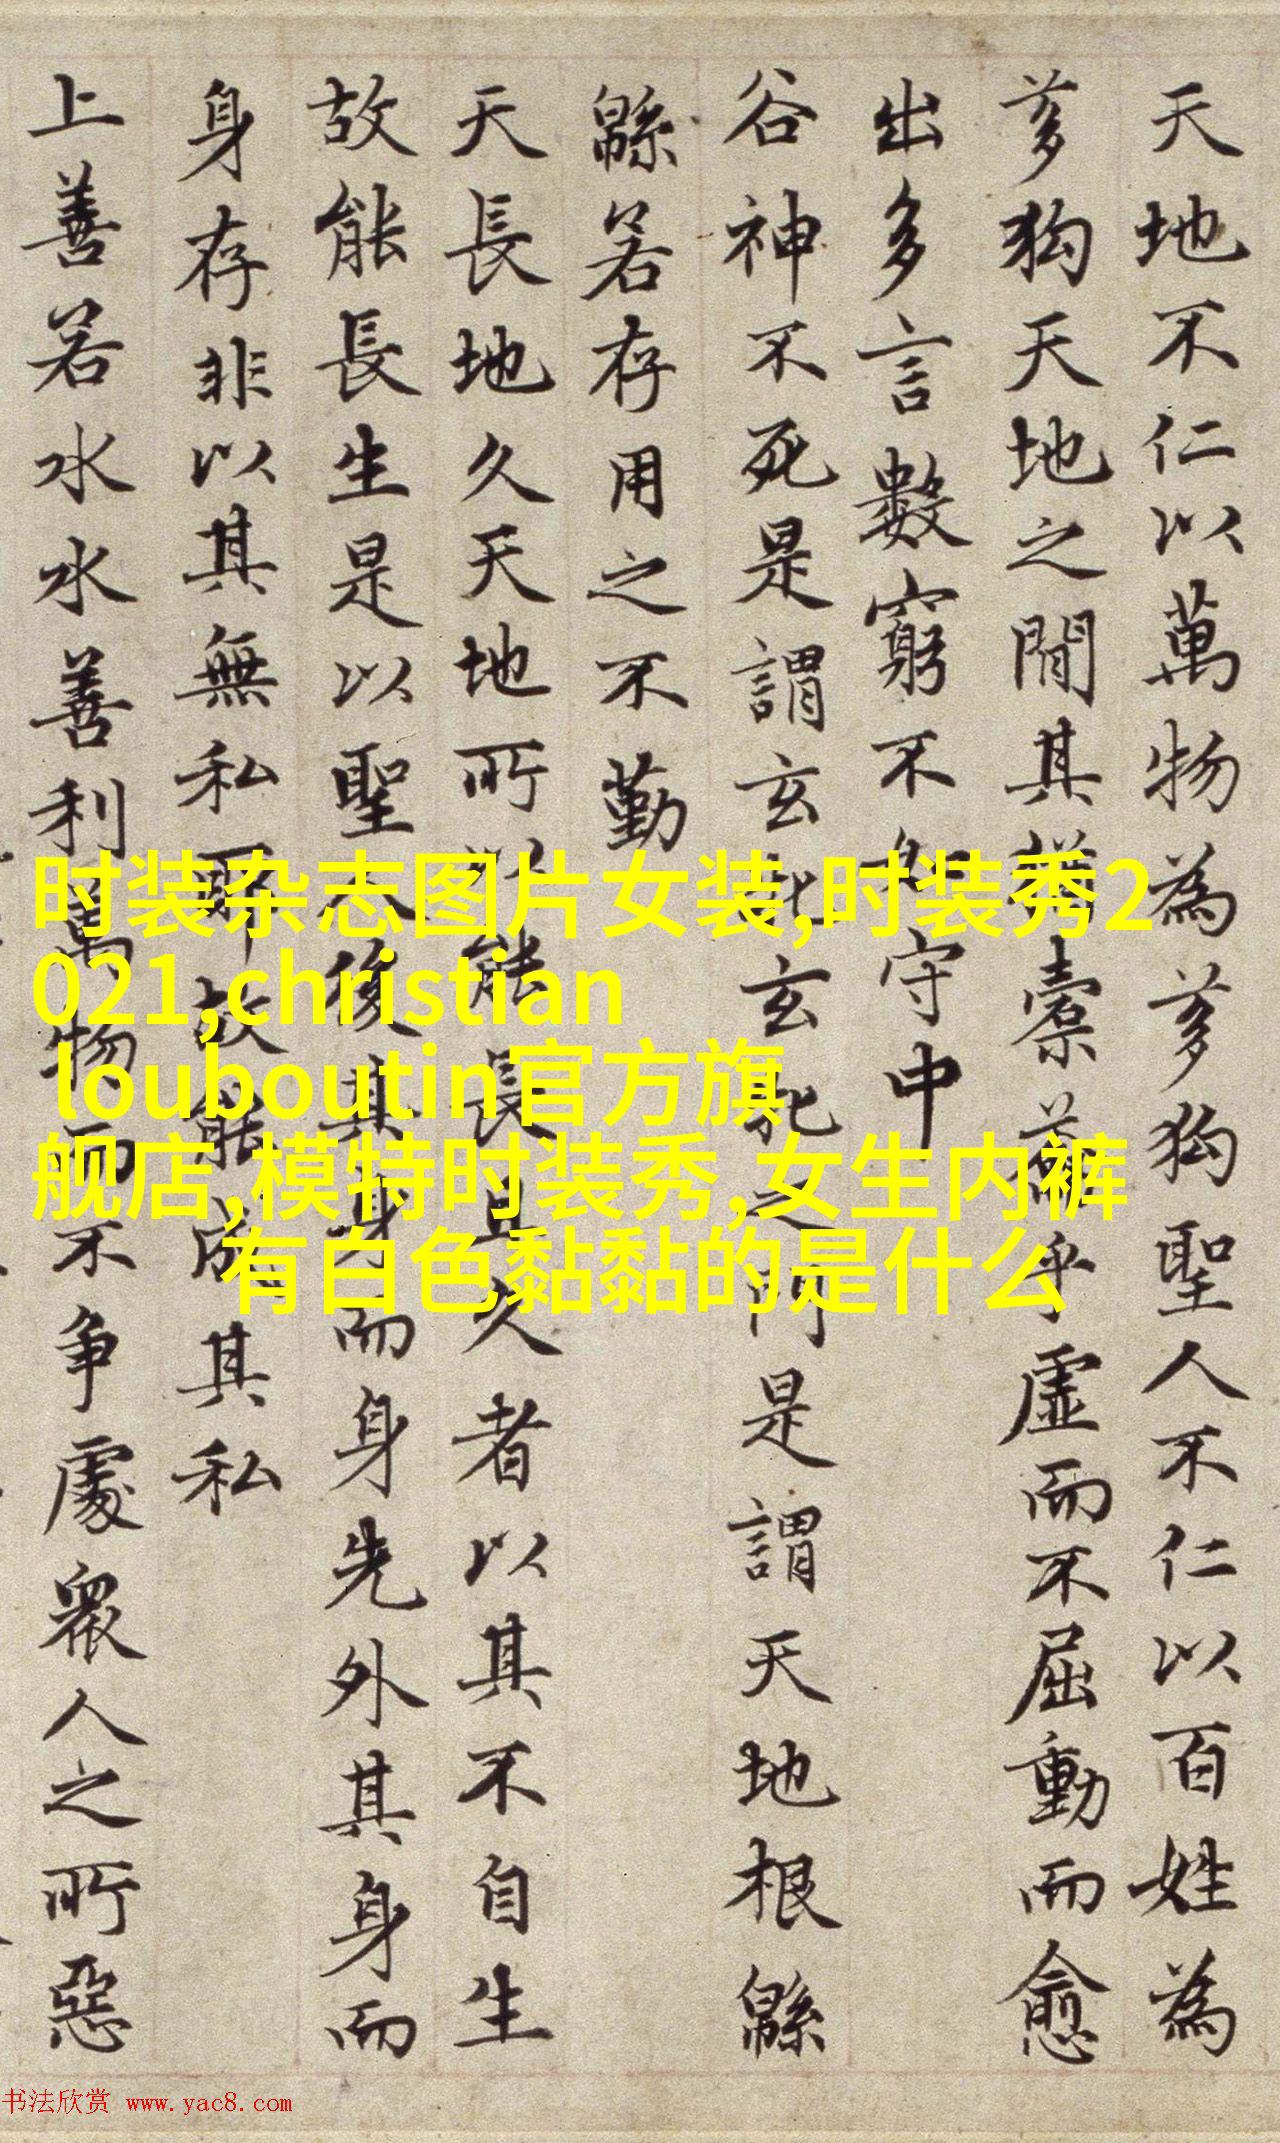 天地不仁以萬物為芻狗聖人不仁以百姓為
芻狗天地之間其猶橐籥乎虛而不屈動而愈
出多言數窮不如守中
谷神不死是謂玄牝玄牝之門是謂天地根緜
緜若存用之不勤
天長地久天地所以能長且久者以其不自生
故能長生是以聖人後其身而身先外其身而
身存非以其無私耶故能成其私
上善若水水善利萬物而不争處衆人之所惡
时装杂志图片女装,时装秀2
021,christian
louboutin官方旗
舰店,模特时装秀,女生内裤
有白色黏黏的是什么
书法欣赏 www.yac8.com